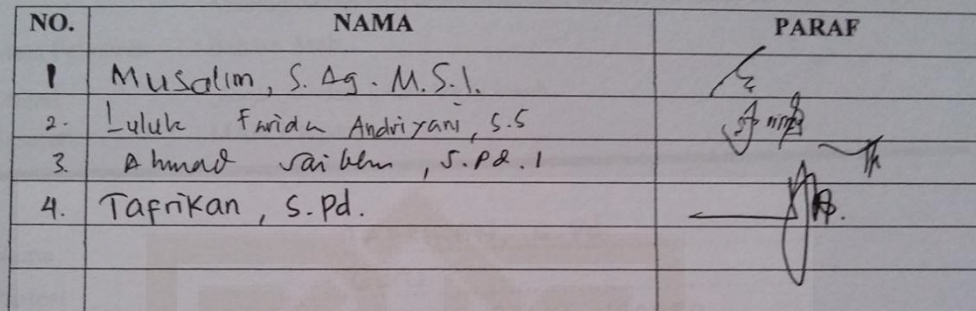 NO. NAMA PARAF
1 Musalim, S. Ag. M.S.I.
2. Luluk Farida Andriyani, S.S
3. Ahmad , S.Pd.I
4. Tafrikan, S.Pd.